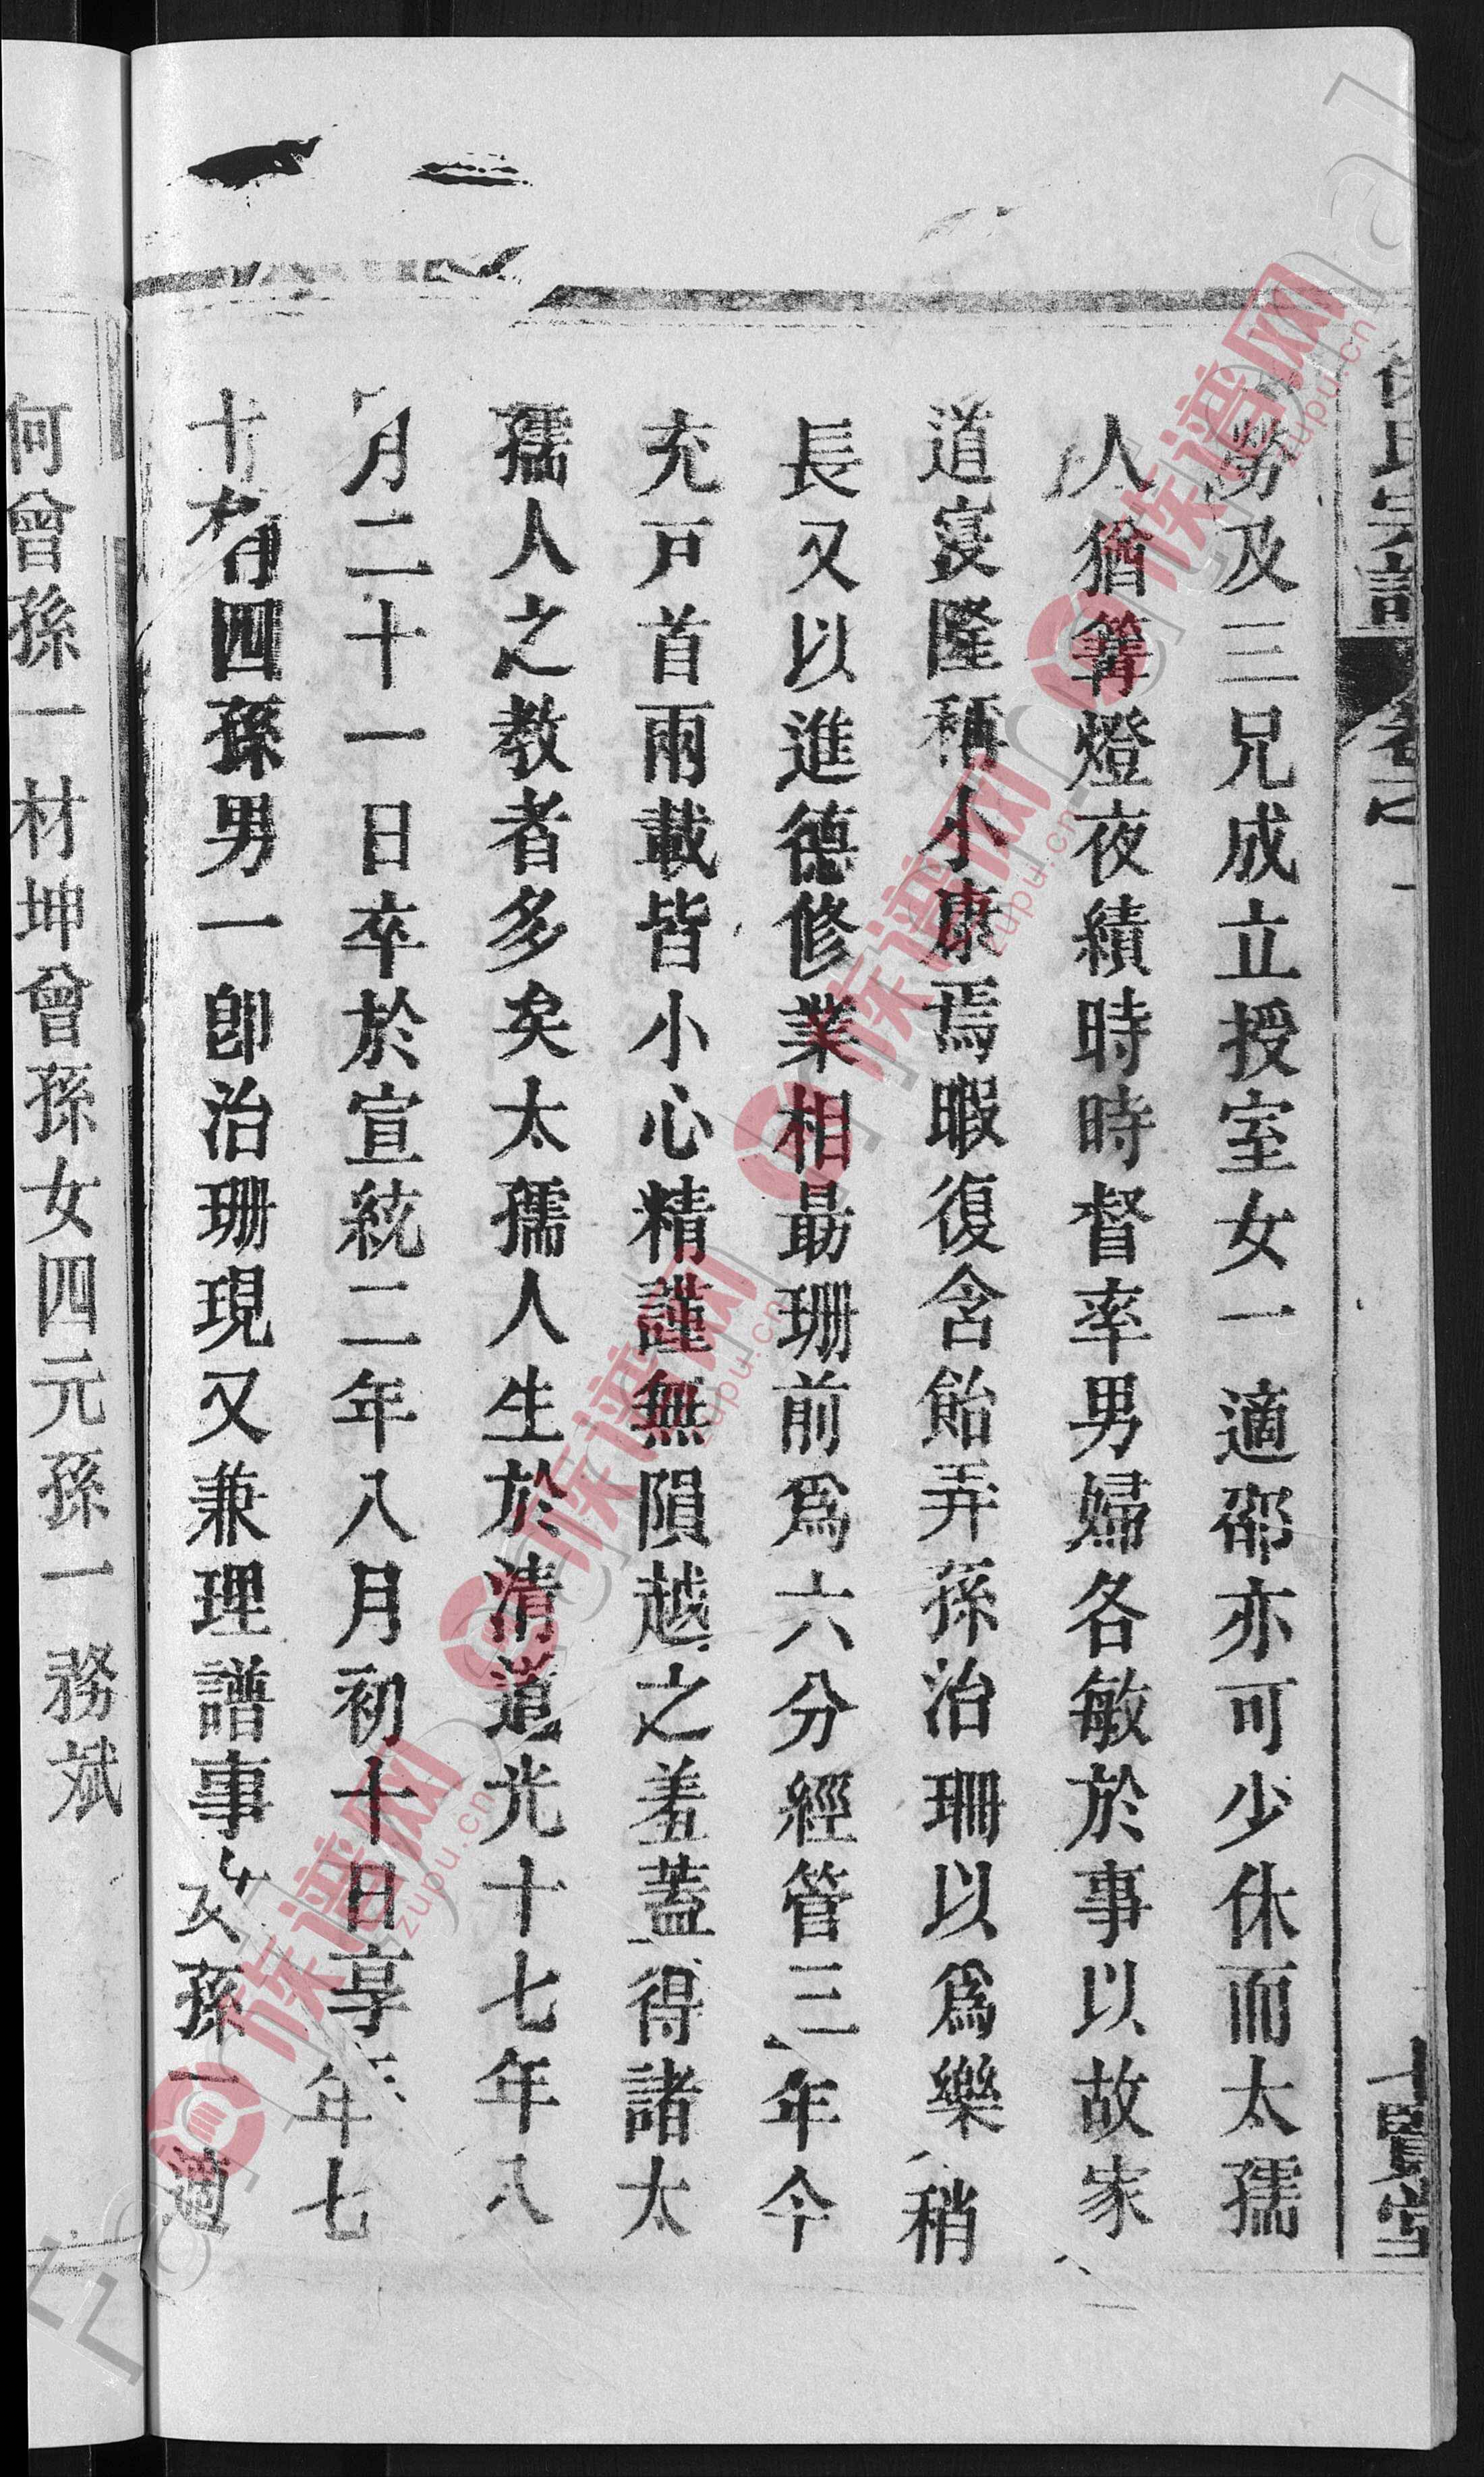 氏宗譜 卷之一 賢堂
勞及三兄成立授室女一適邵亦可少休而太孺
人猶篝燈夜績時時督率男婦各敏於事以故家
道寖隆稱小康焉暇復含飴弄孫治珊以爲樂稍
長又以進德修業相勗珊前爲六分經管三年今
充戸首兩載皆小心精謹無隕越之羞蓋得諸太
孺人之教者多矣太孺人生於清道光十七年八
月二十一日卒於宣統二年八月初十日享年七
十有四孫男一卽治珊現又兼理譜事女孫一適
何曾孫一材坤曾孫女四元孫一務斌
族谱网 zupu.cn
族谱网 zupu.cn
族谱网 zupu.cn
族谱网 zupu.cn